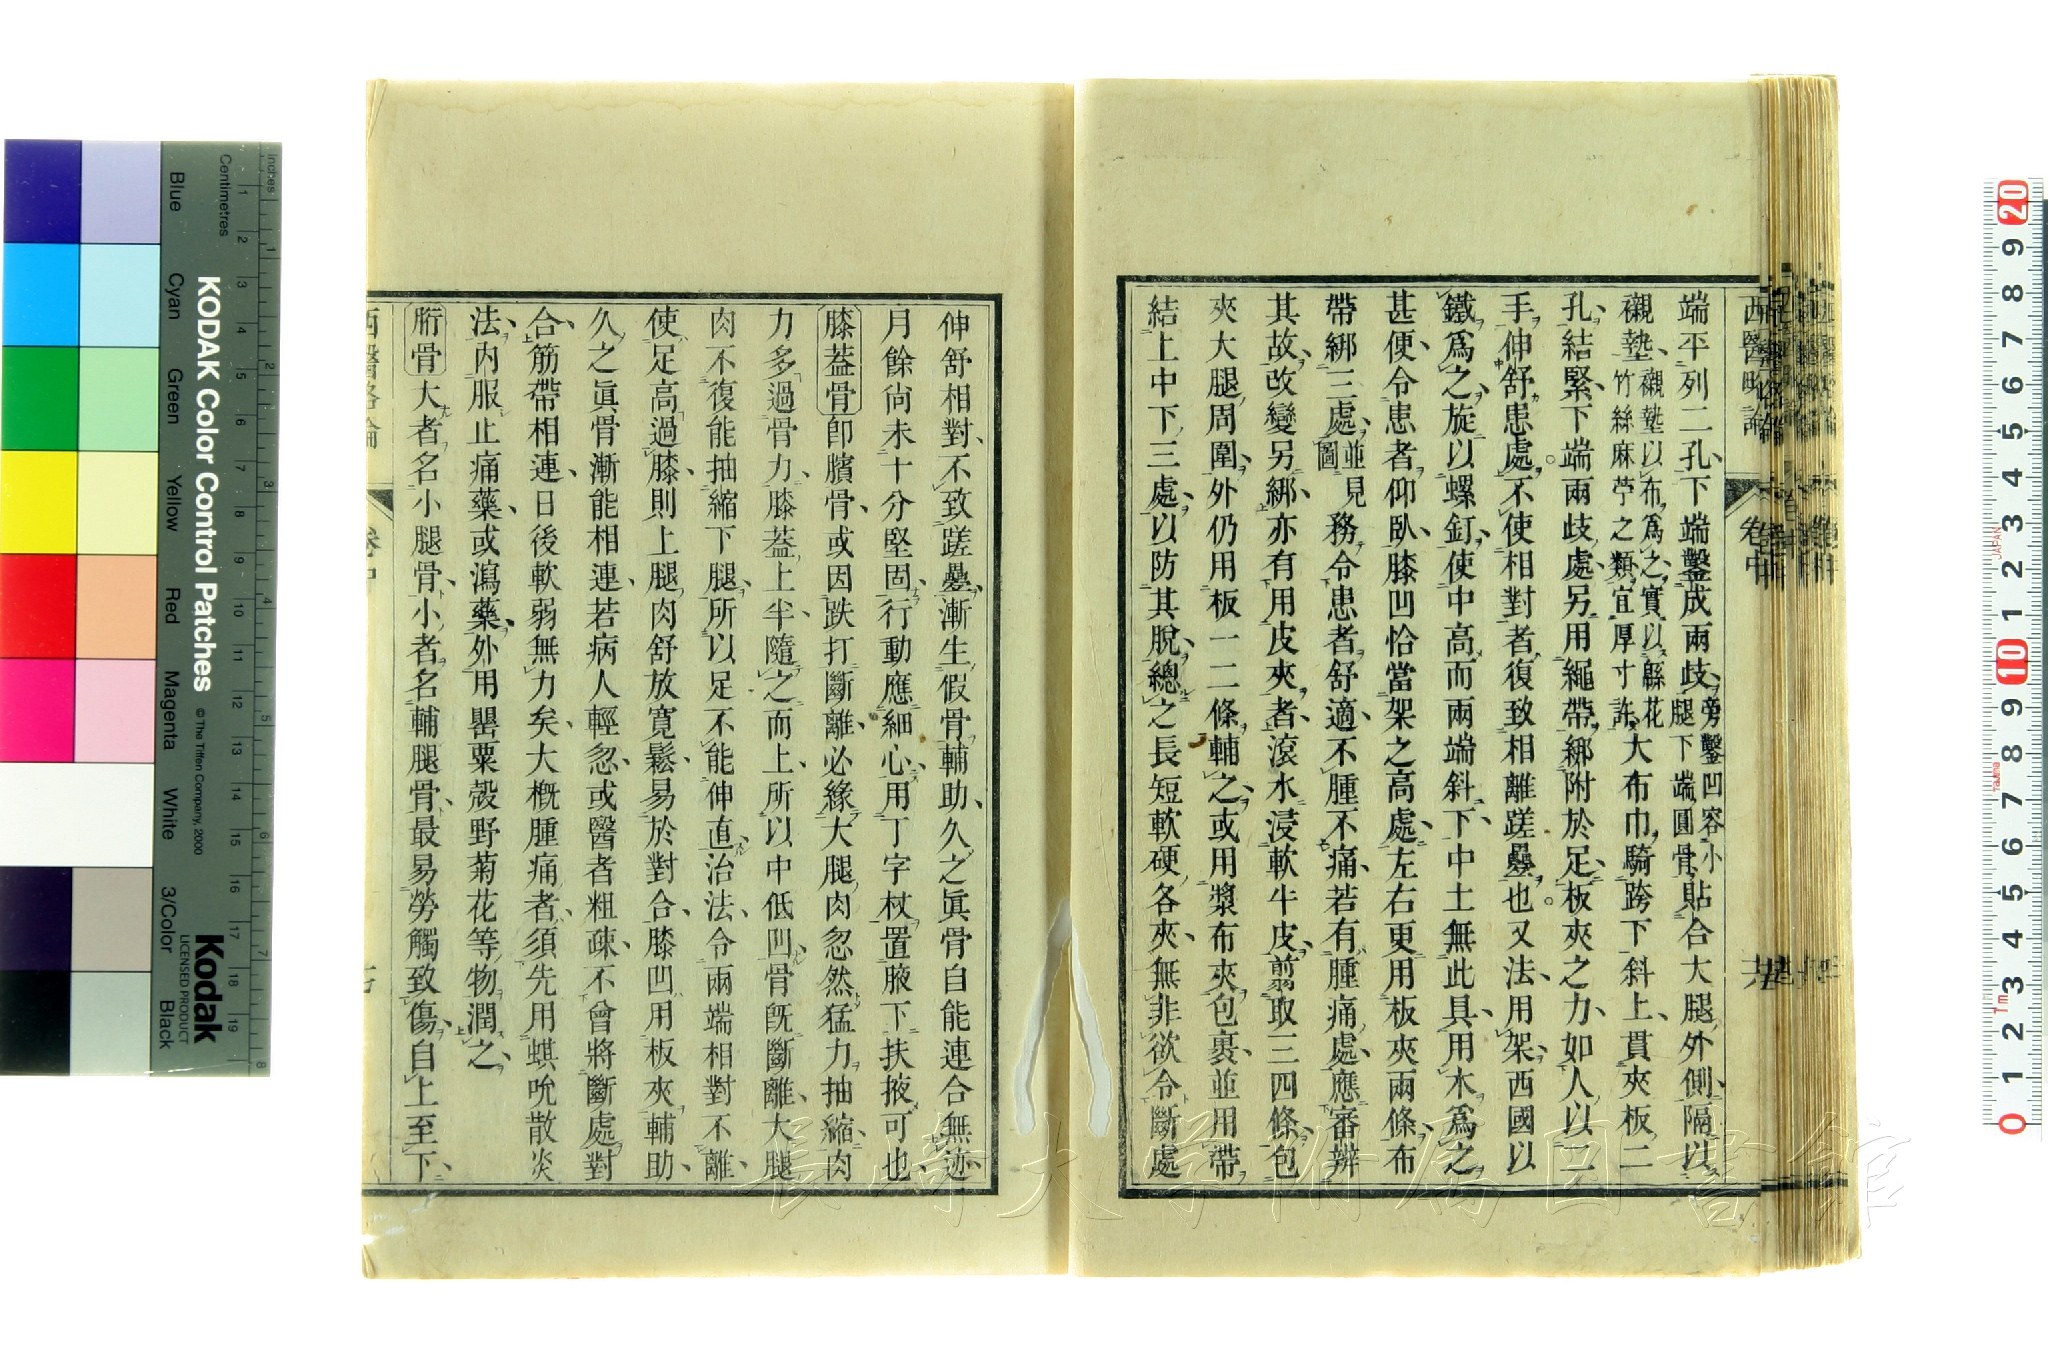 端平列二孔下端鑿成兩歧旁鑿凹容小腿下端圓骨貼合大腿外側隔以
襯墊襯墊以布爲之實以緜花竹絲麻苧之類宜厚寸許大布巾騎跨下斜上貫夾板二
孔結緊下端兩歧處另用繩帶綁附於足板夾之力如人以二
手伸舒患處不使相對者復致相離蹉疊也又法用架西國以
鐵爲之旋以螺釘使中高而兩端斜下中土無此具用木爲之
甚便令患者仰臥膝凹恰當架之高處左右更用板夾兩條布
帶綁三處並見圖務令患者舒適不腫不痛若有腫痛處應審辨
其故改變另綁亦有用皮夾者滾水浸軟牛皮剪取三四條包
夾大腿周圍外仍用板一二條輔之或用漿布夾包裹並用帶
結上中下三處以防其脫總之長短軟硬各夾無非欲令斷處
西醫略論
卷中
伸舒相對不致蹉疊漸生假骨輔助久之眞骨自能連合無迹
月餘尚未十分堅固行動應細心用丁字杖置腋下扶掖可也
膝蓋骨卽臏骨或因跌打斷離必緣大腿肉忽然猛力抽縮肉
力多過骨力膝蓋上半隨之而上所以中低凹骨旣斷離大腿
肉不復能抽縮下腿所以足不能伸直治法令兩端相對不離
使足高過膝則上腿肉舒放寬鬆易於對合膝凹用板夾輔助
久之眞骨漸能相連若病人輕忽或醫者粗疎不曾將斷處對
合筋帶相連日後軟弱無力矣大概腫痛者須先用蜞吮散炎
法內服止痛藥或瀉藥外用罌粟殼野菊花等物潤之
胻骨大者名小腿骨小者名輔腿骨最易勞觸致傷自上至下
西醫略論
卷中
KODAK Color Control Patches
© The Tiffen Company, 2000
Kodak
LICENSED PRODUCT
Inches
Centimetres
Blue
Cyan
Green
Yellow
Red
Magenta
White
3/Color
Black
長崎大学附属図書館